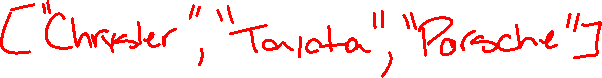 ["Chrysler", "Toyota", "Porsche"]